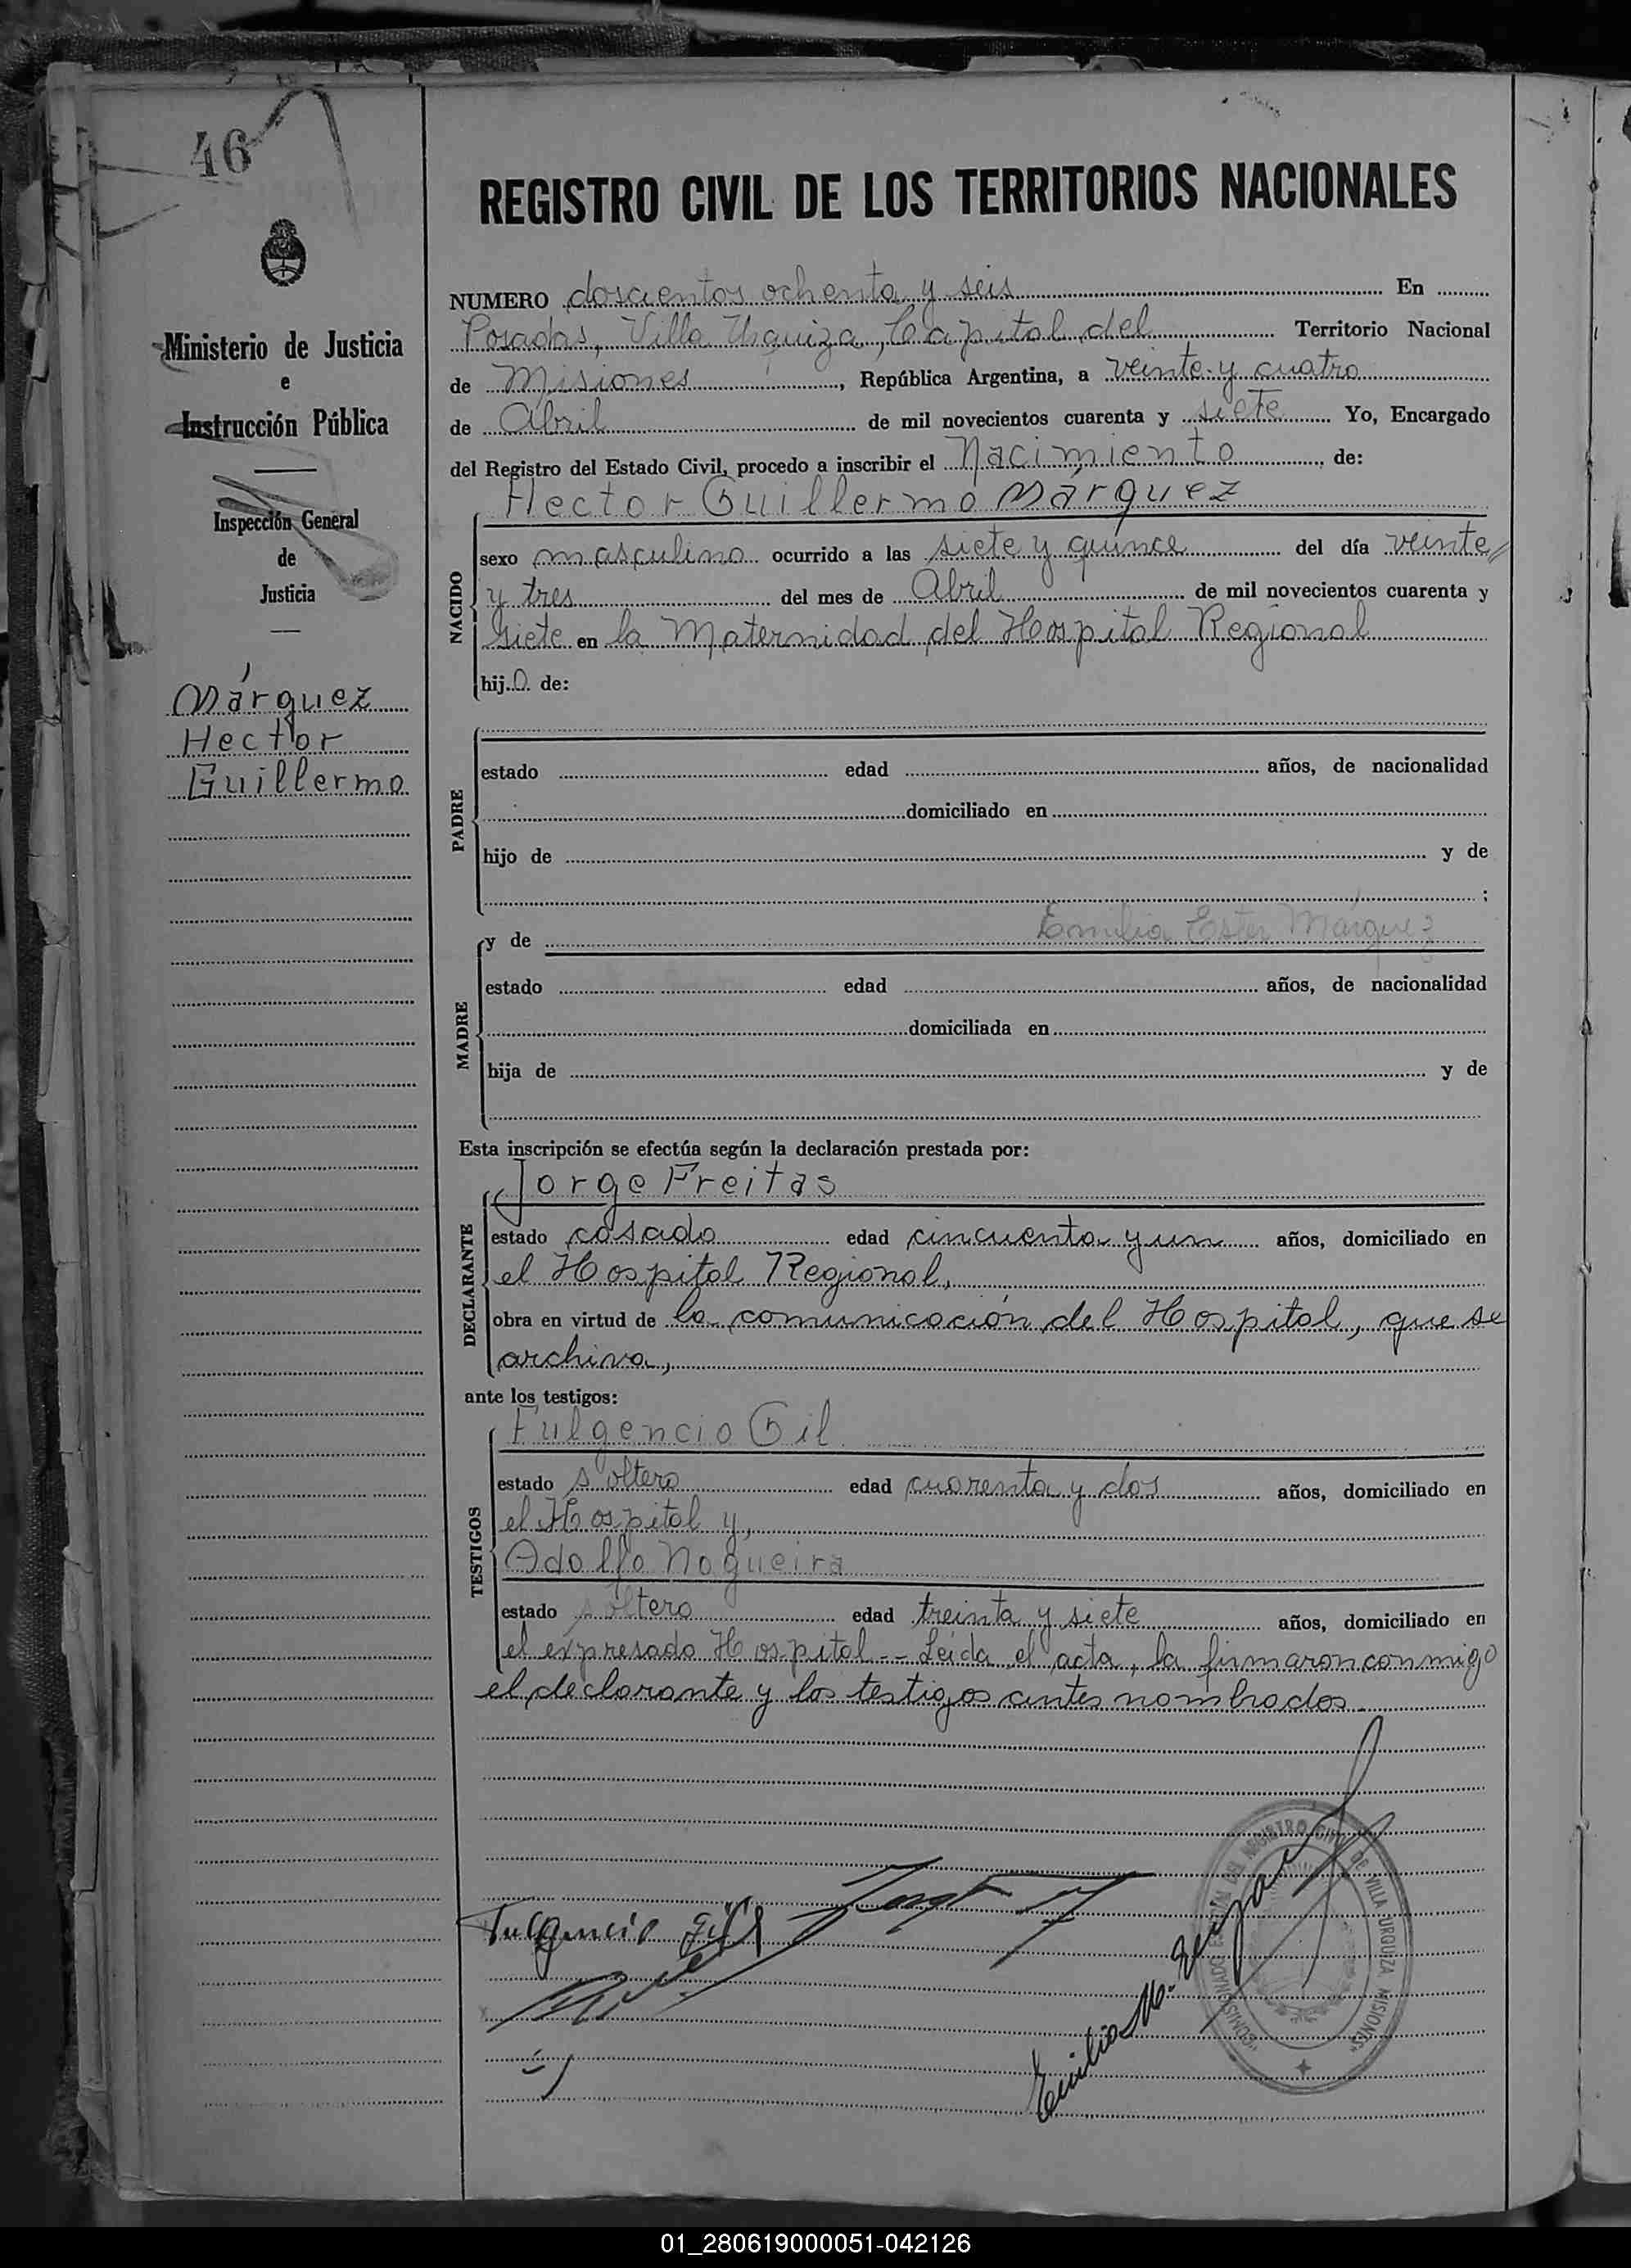 46
Ministerio de Justicia
e
Instrucción Pública
Inspección General
de
Justicia
Márquez
Hector
Guillermo
REGISTRO CIVIL DE LOS TERRITORIOS NACIONALES
NUMERO doscientos ochenta y seis En
Posadas, Villa Urquiza, Capital del Territorio Nacional
de Misiones, República Argentina, a veinte y cuatro
de Abril de mil novecientos cuarenta y siete Yo, Encargado
del Registro del Estado Civil, procedo a inscribir el Nacimiento de:
Hector Guillermo Márquez
NACIDO
sexo masculino ocurrido a las siete y quince del día veinte
y tres del mes de Abril de mil novecientos cuarenta y
siete en la Maternidad del Hospital Regional
hijo de:
PADRE
estado edad años, de nacionalidad
domiciliado en
hijo de y de
;
MADRE
y de Emilia Ester Márquez
estado edad años, de nacionalidad
domiciliada en
hija de y de
Esta inscripción se efectúa según la declaración prestada por:
Jorge Freitas
DECLARANTE
estado casado edad cincuenta y un años, domiciliado en
el Hospital Regional,
obra en virtud de la comunicación del Hospital, que se
archiva,
ante los testigos:
Fulgencio Gil
TESTIGOS
estado soltero edad cuarenta y dos años, domiciliado en
el Hospital y,
Adolfo Nogueira
estado soltero edad treinta y siete años, domiciliado en
el expresado Hospital -- Leída el acta, la firmaron conmigo
el declarante y los testigos antes nombrados
Fulgencio Gil
Emilio M.
REGISTRO CIVIL DE VILLA URQUIZA MISIONES
01_280619000051-042126